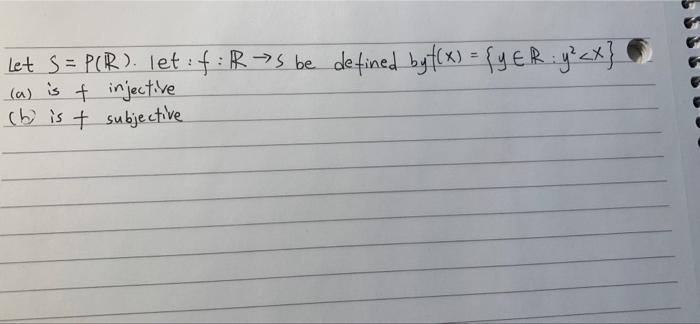 Let S = P(ℝ). let : f : ℝ → s be defined by f(x) = {y ∈ ℝ : y² < x}
(a) is f injective
(b) is f subjective